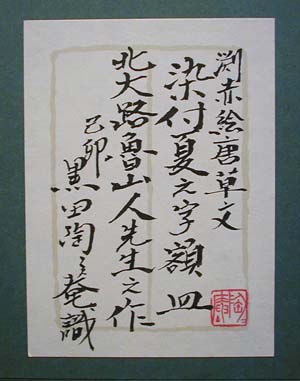 渕赤絵唐草文
染付夏文字額皿
北大路魯山人先生之作
己卯
黒田陶々庵識